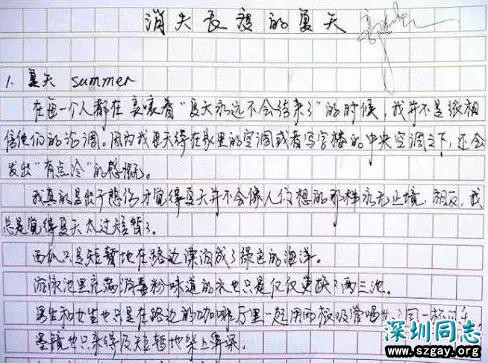 消失长度的夏天
1. 夏天 summer
在每一个人都在哀嚎着“夏天永远不会结束了”的时候，我并不是很相
信他们的论调。因为我每天缩在家里的空调或者写字楼的中央空调之下，还会
发出“有点冷”的感慨。
我真的是出于想象才觉得夏天并不会像人们想的那样永无止境，相反，我
总是觉得夏天太过短暂了。
西瓜只是短暂地在路边漂浮成了绿色的海洋。
游泳池里充满消毒粉味道的水也只是仅仅更换了两三池。
男生和女生也只是在路边的咖啡厅里一起用两根吸管喝
墨镜也只来得及短暂地架上鼻梁。
深圳同志
www.szgay.org